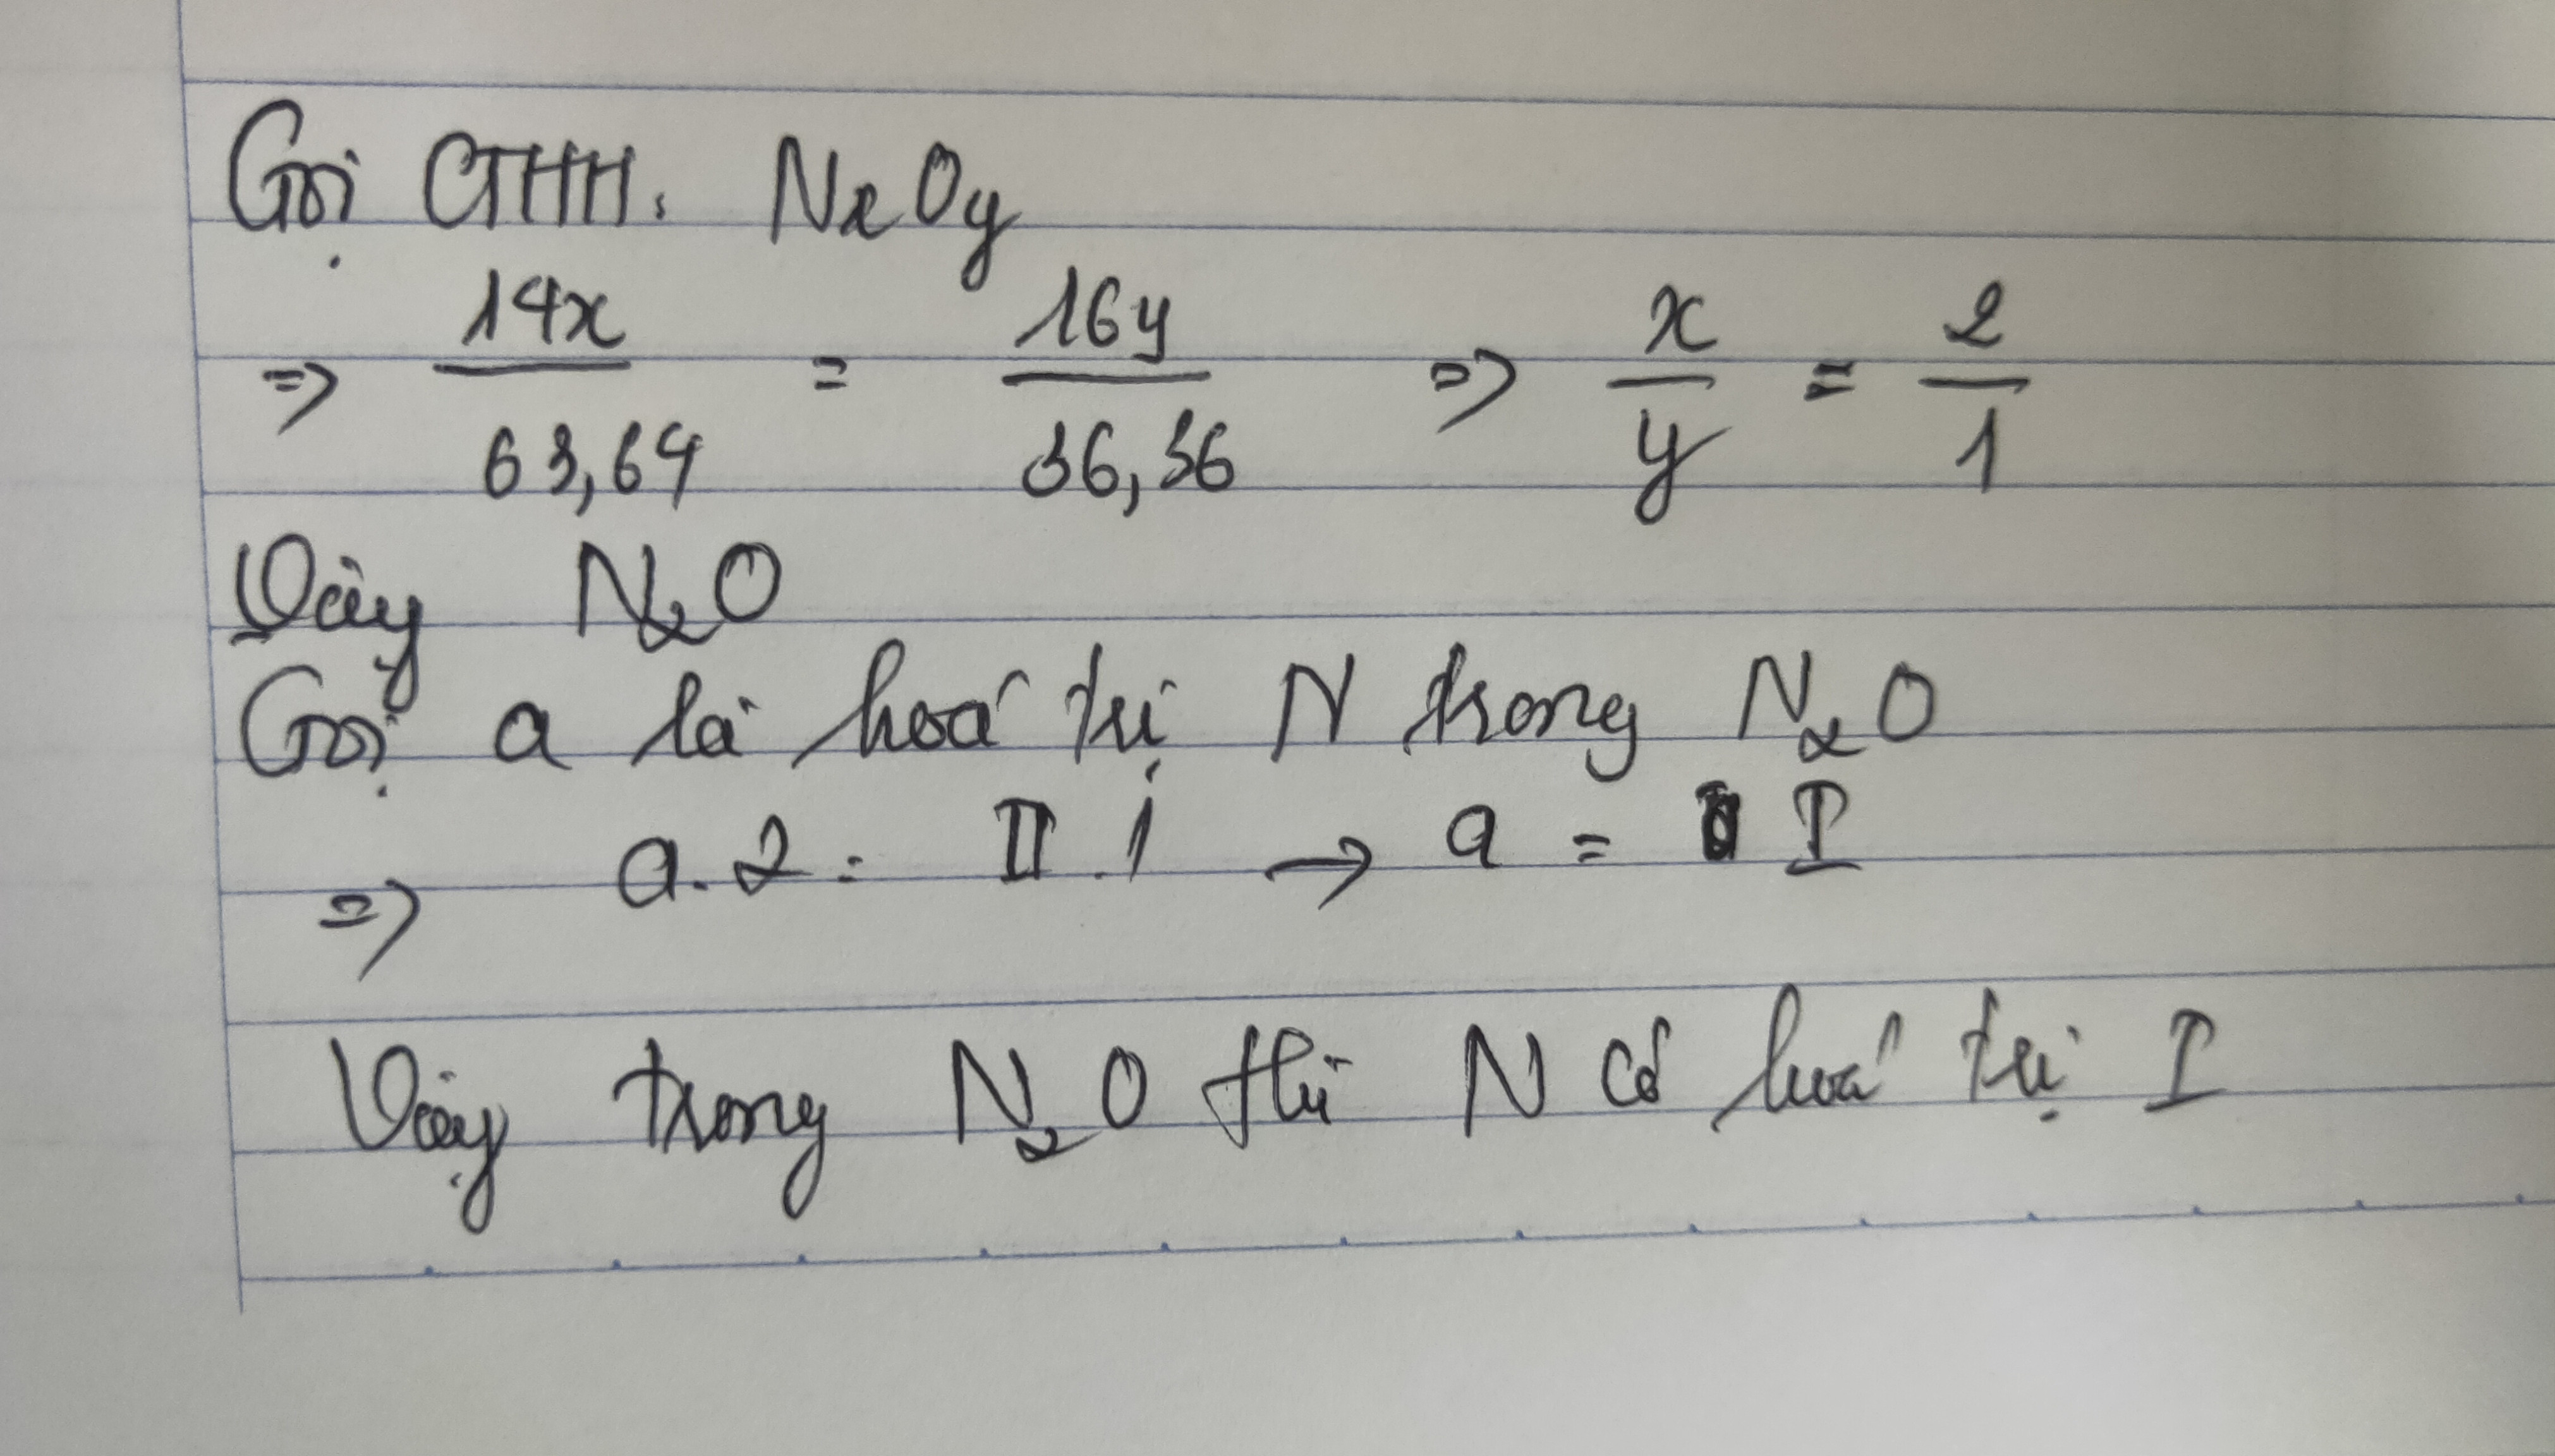 Gọi CTHH: NxOy
=> 14x/63,64 = 16y/36,36 => x/y = 2/1
Vậy N2O
Gọi a là hoá trị N trong N2O
=> a.2 = II.1 → a = I
Vậy trong N2O thì N có hoá trị I